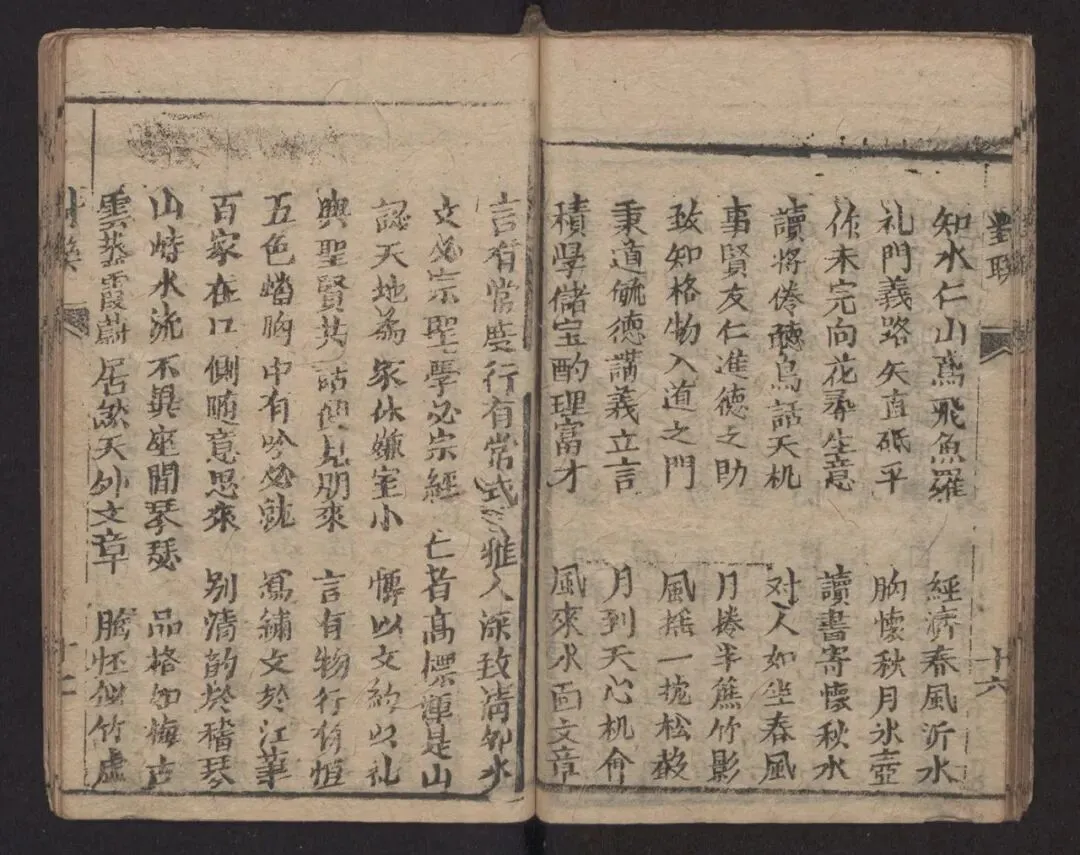 對聯
知水仁山鳶飛魚羅 經濟春風沂水
礼門義路矢直砥平 胸懷秋月氷壺
作未完向花奉生意 讀書寄懷秋水
讀將倦聴鳥話天机 对人如坐春風
事賢友仁進德之助 月捲半蕉竹影
致知格物入道之門 風搖一枕松
秉道毓德講義立言 月到天心机
積學儲宝酌理富才 風來水面文章
十六
言有常度行有常式 雅人深致清如水
文必宗聖學必宗經 仁者高標渾是山
認天地為家休嫌室小 博以文約以礼
與聖賢共話便見朋來 言有物行有恒
五色當胸中有吟必就 寫繡文於江筆
百家在口側随意思來 别清韵於稽琴
山峙水流不異座間琴瑟 品格如梅古
雲蒸霞蔚居然天外文章 胸怀似竹虚